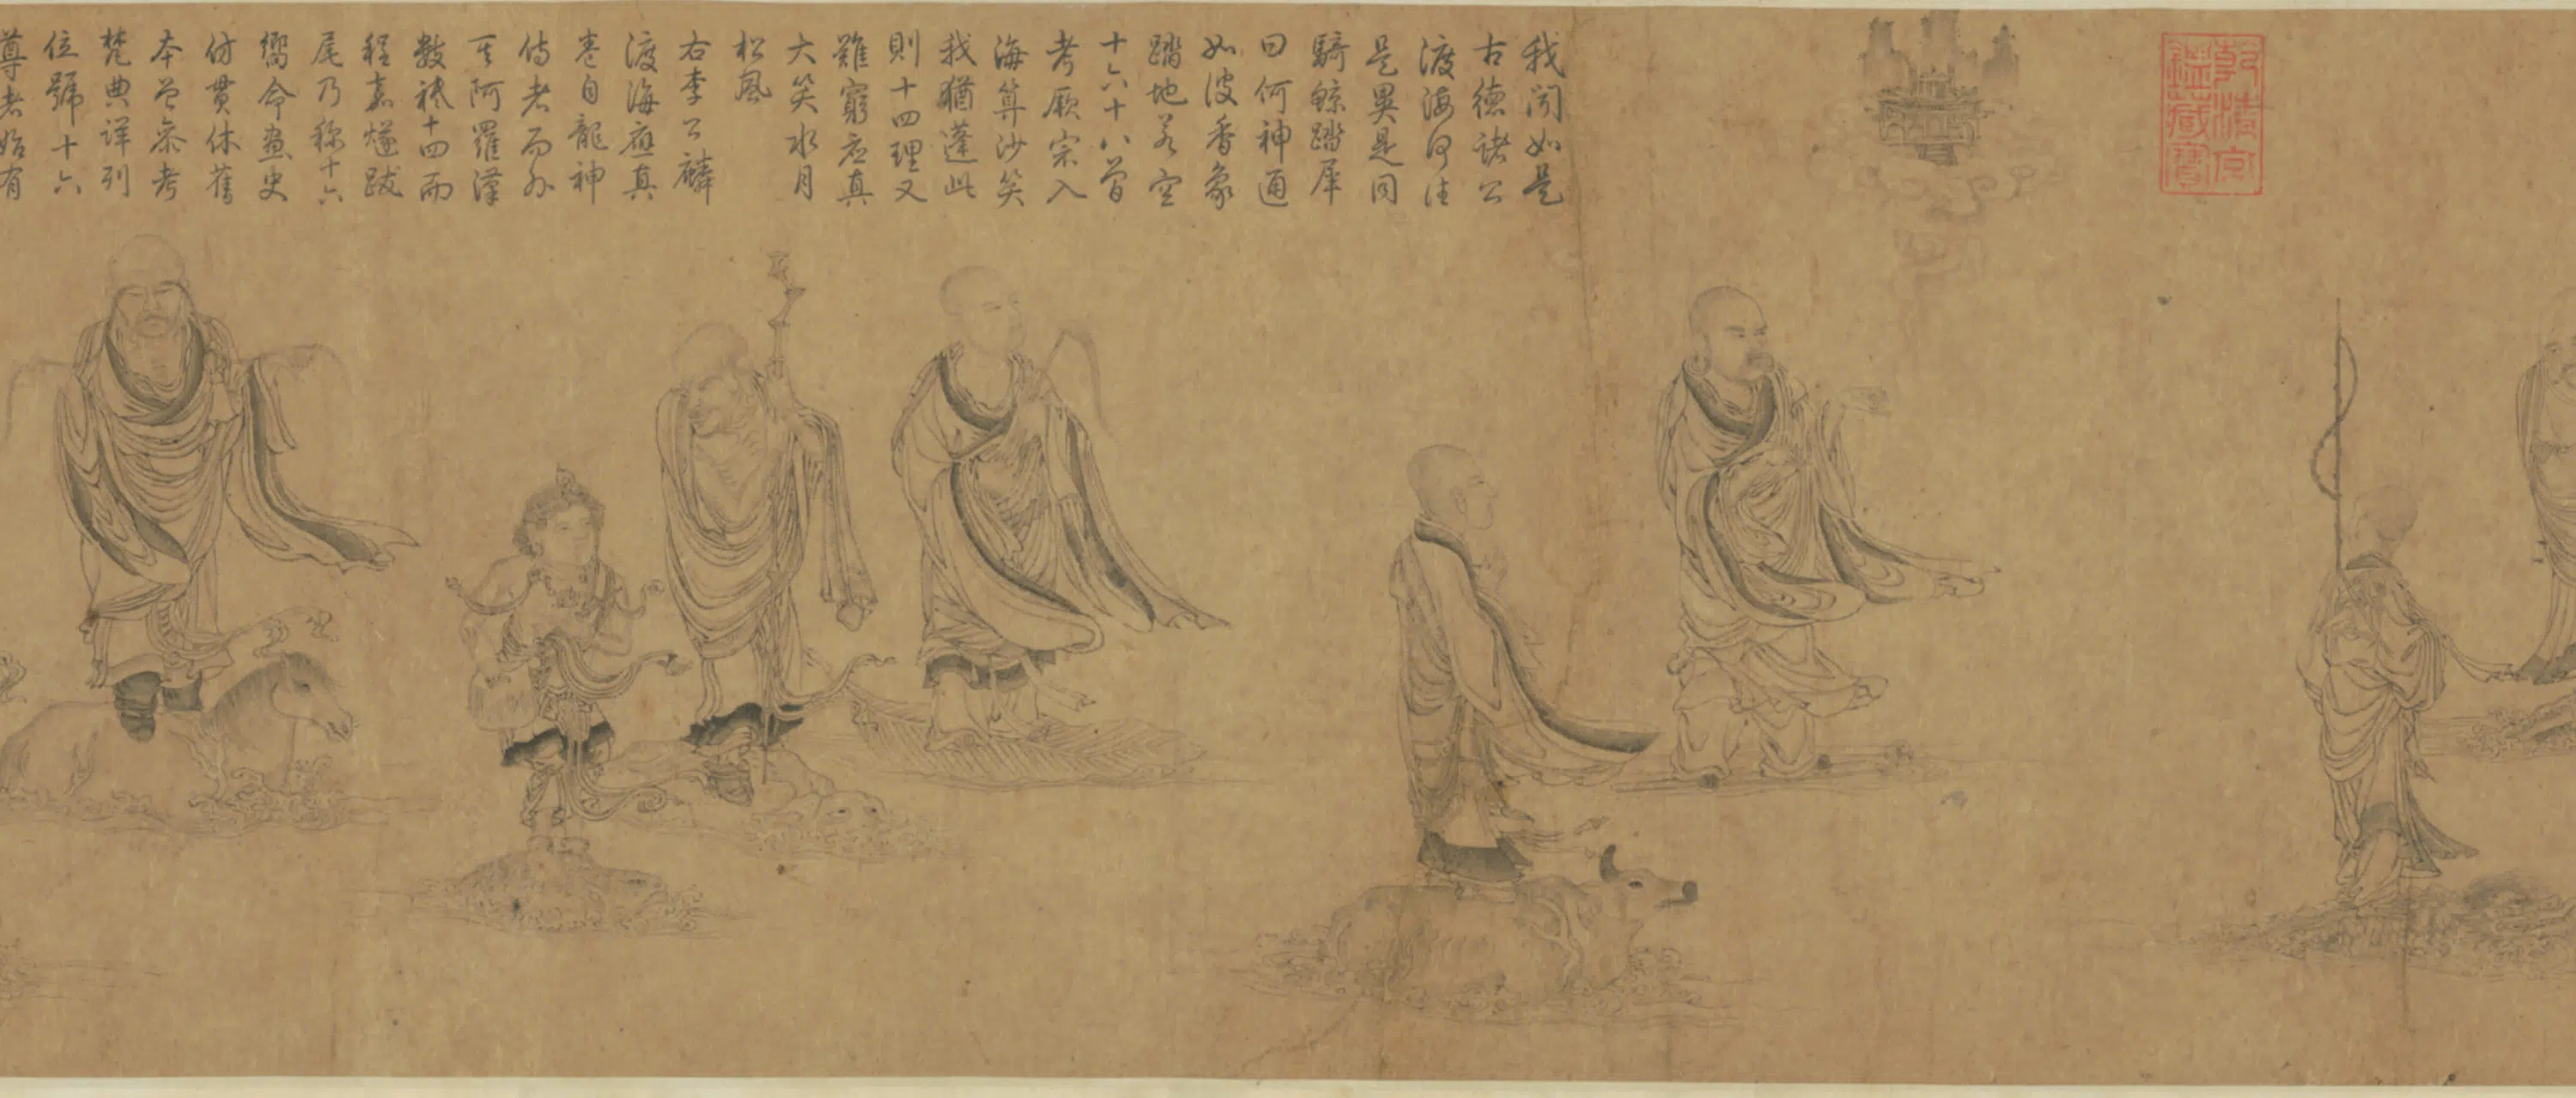 我闻如是
古德诸公
渡海何往
是異是同
騎鯨踏犀
曰何神通
如彼香象
踏地若空
十六十八曾
考厥宗入
海算沙笑
我猶蓬此
則十四理又
難窮應真
大笑水月
松風
右李公麟
渡海應真
卷自龍神
侍者而外
天阿羅漢
數祇十四而
程嘉燧跋
尾乃稱十六
嚮命畫史
仿貫休舊
本曾茶考
梵典詳列
位號十六
尊者始有
乾清宮
鑑藏寶